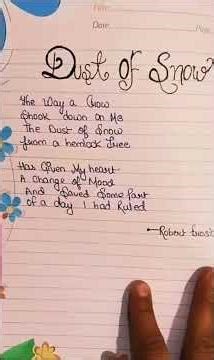 Date
Dust of Snow
The Way a Crow
Shook down on Me
The Dust of Snow
From a hemlock Tree
Has Given My heart
A Change of Mood
And Saved Some Part
of a day I had Ruled
—Robert Frost